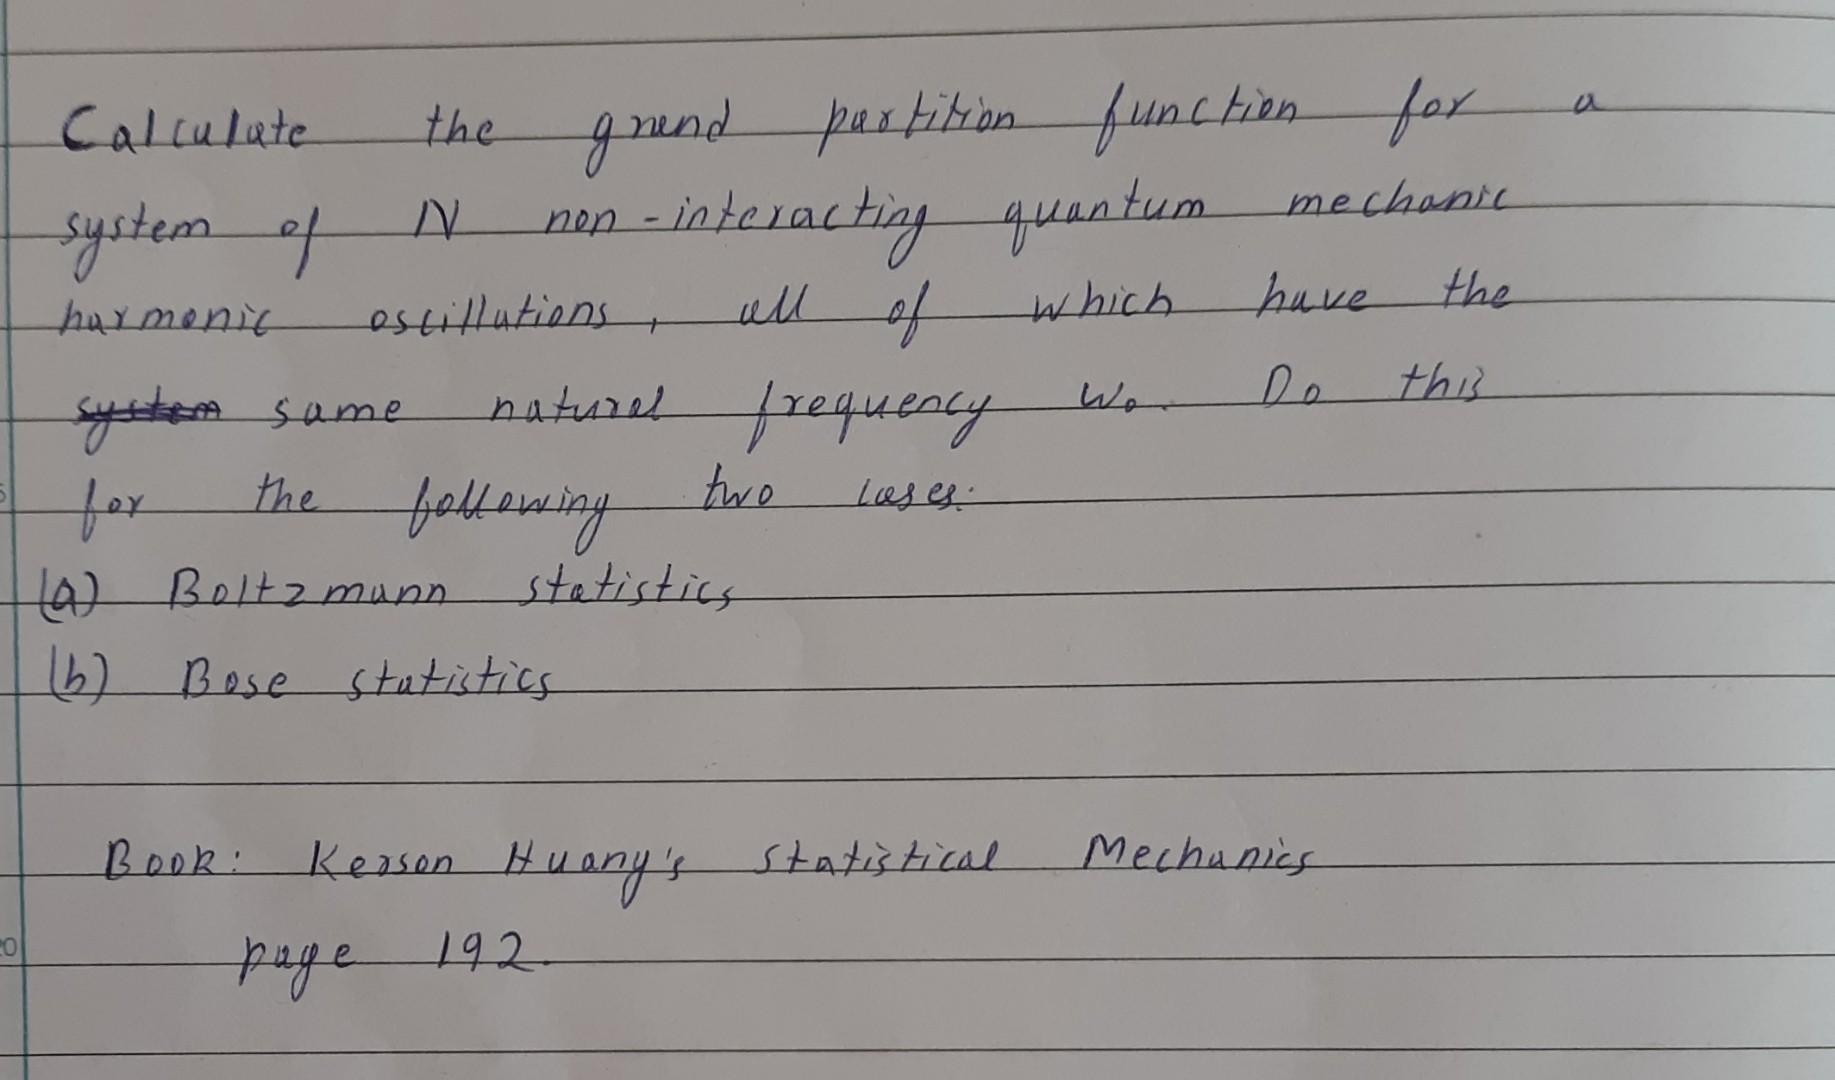 Calculate the grand partition function for a
system of N non-interacting quantum mechanic
harmonic oscillations, all of which have the
system same natural frequency ω₀. Do this
for the following two cases:
(a) Boltzmann statistics
(b) Bose statistics
Book: Kerson Huang's Statistical Mechanics
page 192.